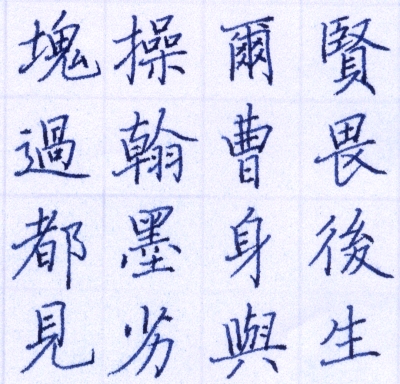 賢畏後生
爾曹身與
操翰墨劣
塊過都見